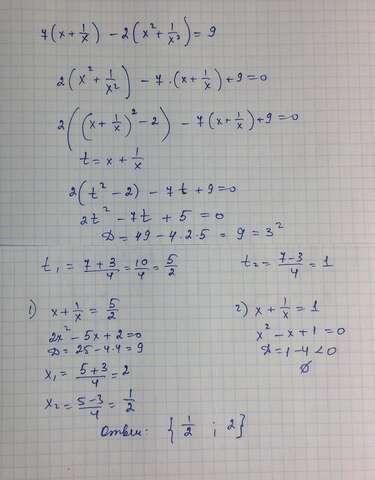 7(x + 1/x) - 2(x² + 1/x²) = 9
2(x² + 1/x²) - 7·(x + 1/x) + 9 = 0
2((x + 1/x)² - 2) - 7(x + 1/x) + 9 = 0
t = x + 1/x
2(t² - 2) - 7t + 9 = 0
2t² - 7t + 5 = 0
D = 49 - 4·2·5 = 9 = 3²
t₁ = (7+3)/4 = 10/4 = 5/2
t₂ = (7-3)/4 = 1
1) x + 1/x = 5/2
2x² - 5x + 2 = 0
D = 25 - 4·4 = 9
x₁ = (5+3)/4 = 2
x₂ = (5-3)/4 = 1/2
2) x + 1/x = 1
x² - x + 1 = 0
D = 1 - 4 < 0
∅
Ответ: {1/2 ; 2}